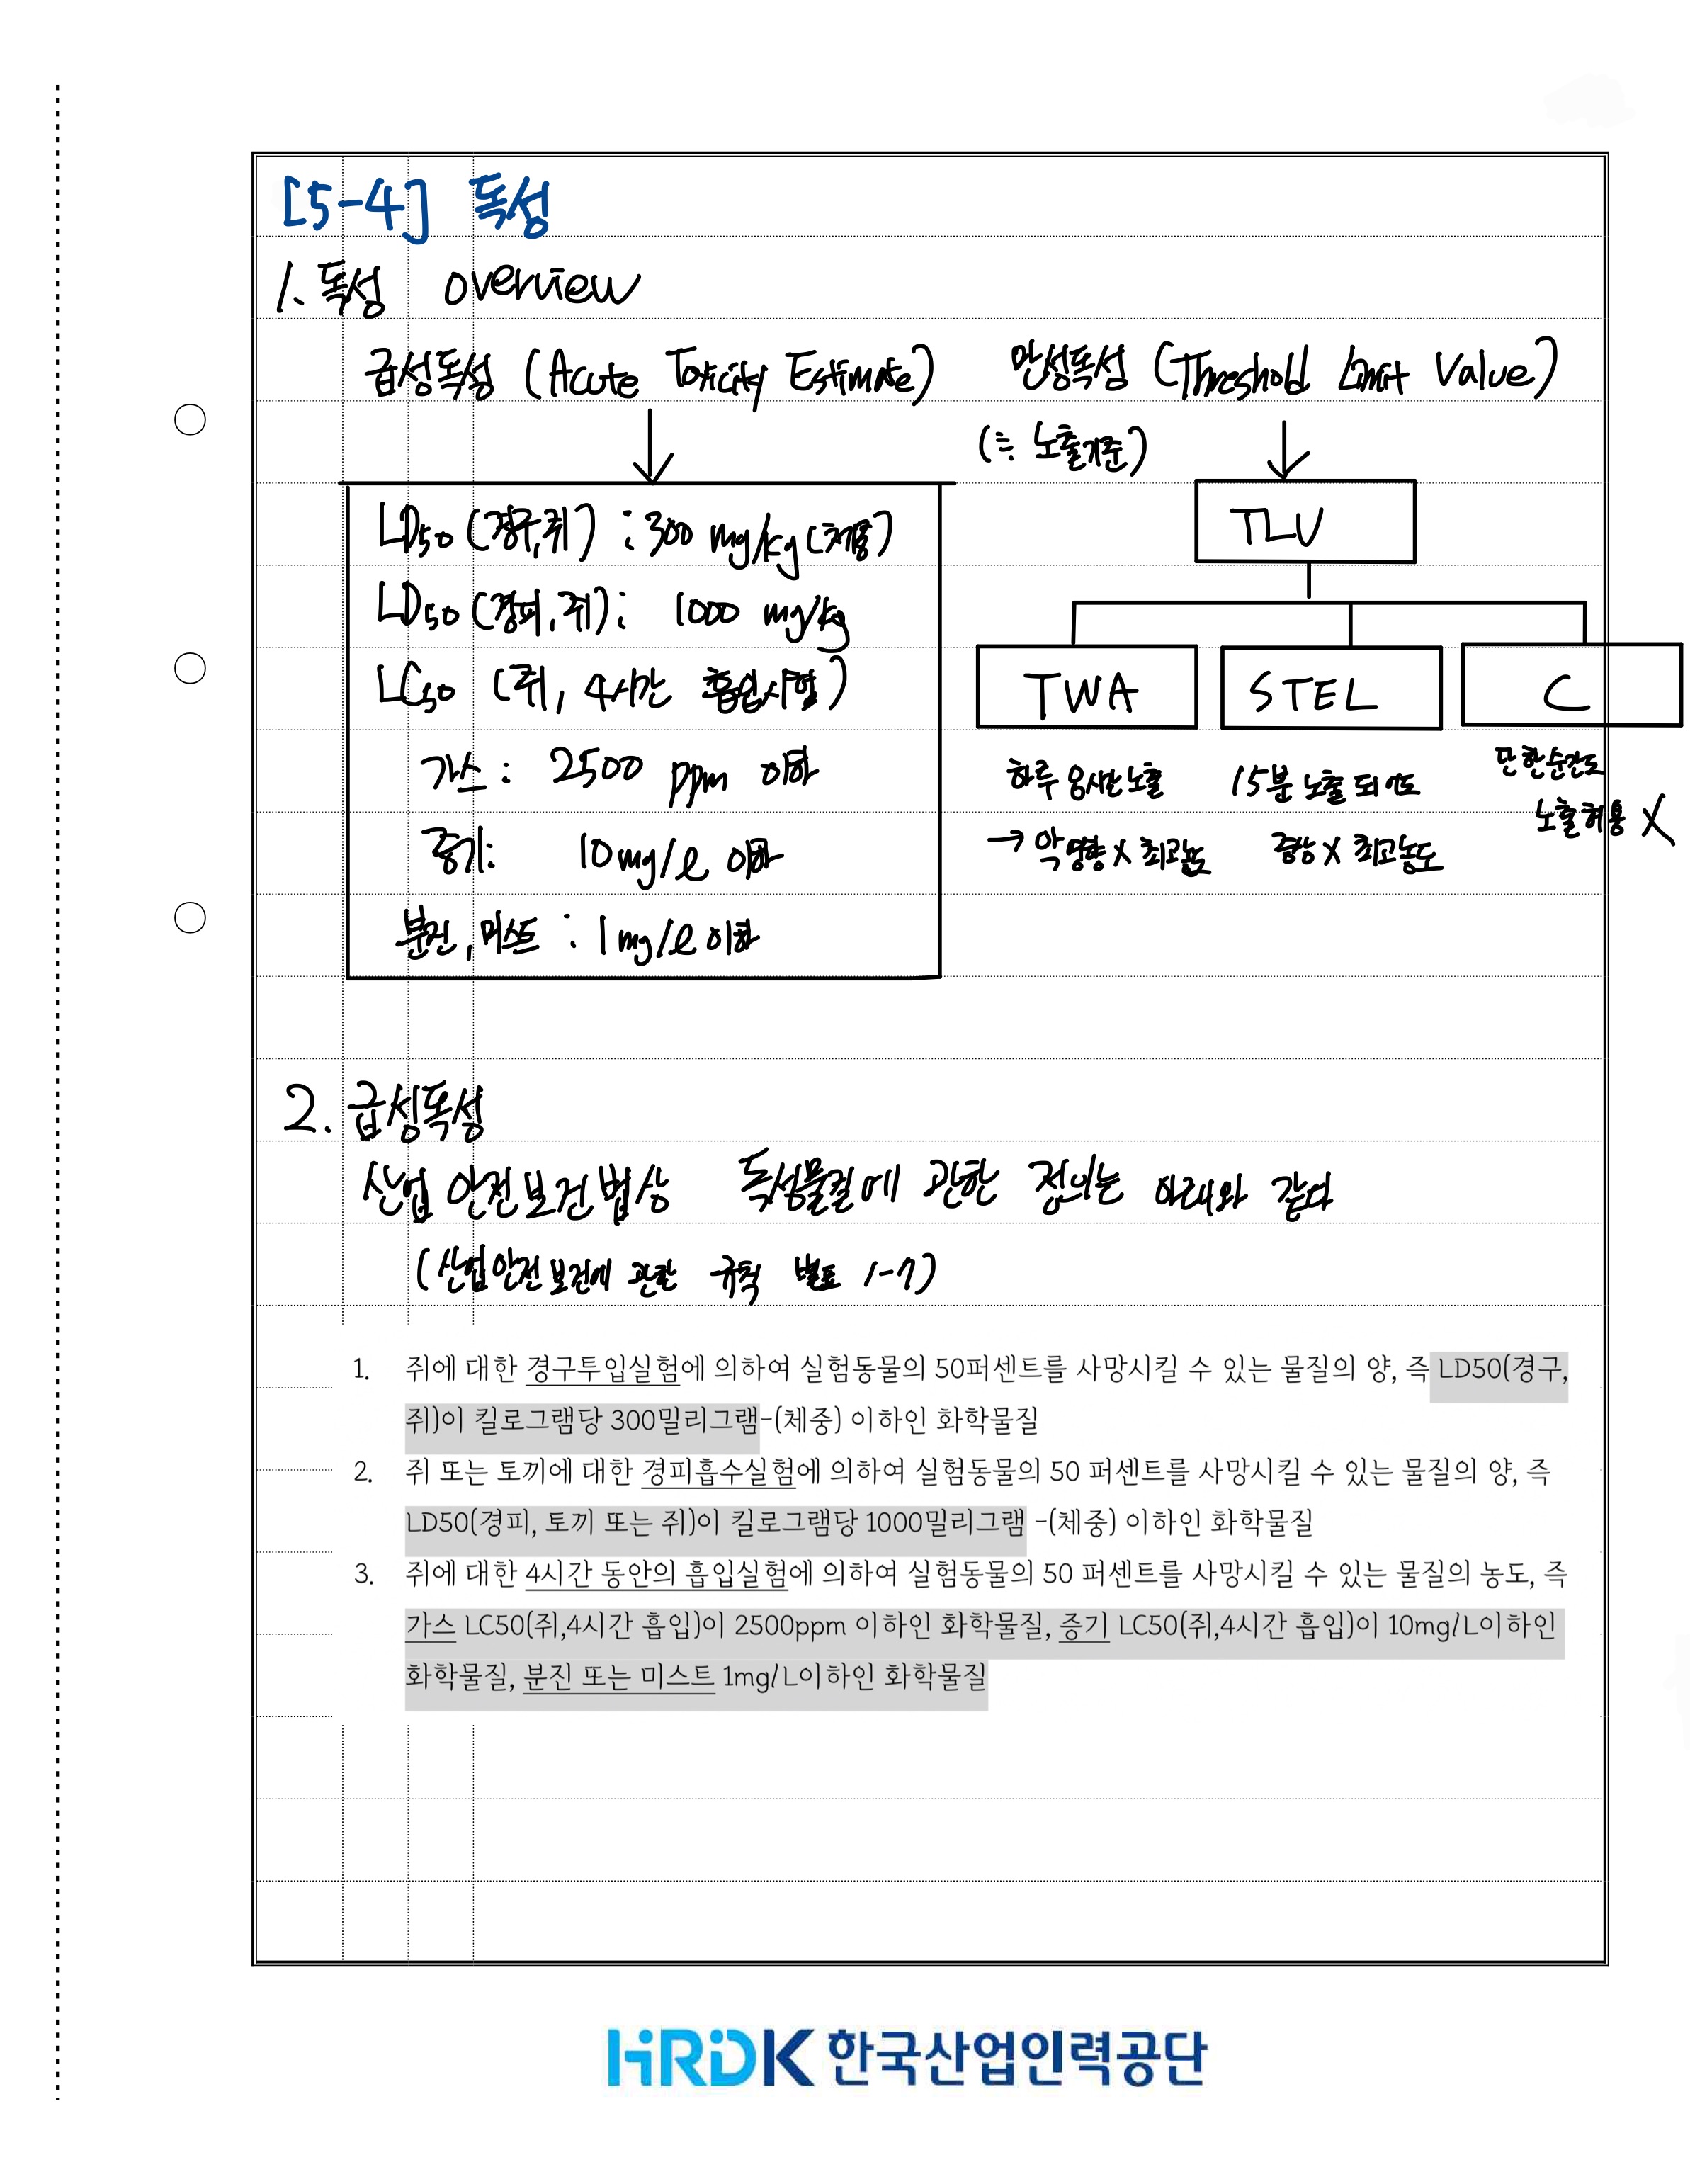 [5-4] 독성
1. 독성 overview
급성독성 (Acute Toxicity Estimate)
만성독성 (Threshold Limit Value)
(≒ 노출기준)
LD50 (경구,쥐) : 300 mg/kg (체중)
LD50 (경피, 쥐) : 1000 mg/kg
LC50 (쥐, 4시간 흡입시험)
가스 : 2500 ppm 이하
증기 : 10mg/ℓ 이하
분진, 미스트 : 1mg/ℓ 이하
TLV
TWA
STEL
C
하루 8시간 노출
→ 악영향 X 최고농도
15분 노출 되어도
증상 X 최고농도
단 한순간도
노출 허용 X
2. 급성독성
산업안전보건법상 독성물질에 관한 정의는 아래와 같다
(산업안전보건에 관한 규칙 별표 1-7)
1. 쥐에 대한 경구투입실험에 의하여 실험동물의 50퍼센트를 사망시킬 수 있는 물질의 양, 즉 LD50(경구,
쥐)이 킬로그램당 300밀리그램-(체중) 이하인 화학물질
2. 쥐 또는 토끼에 대한 경피흡수실험에 의하여 실험동물의 50 퍼센트를 사망시킬 수 있는 물질의 양, 즉
LD50(경피, 토끼 또는 쥐)이 킬로그램당 1000밀리그램 -(체중) 이하인 화학물질
3. 쥐에 대한 4시간 동안의 흡입실험에 의하여 실험동물의 50 퍼센트를 사망시킬 수 있는 물질의 농도, 즉
가스 LC50(쥐,4시간 흡입)이 2500ppm 이하인 화학물질, 증기 LC50(쥐,4시간 흡입)이 10mg/L이하인
화학물질, 분진 또는 미스트 1mg/L이하인 화학물질
HRDK 한국산업인력공단